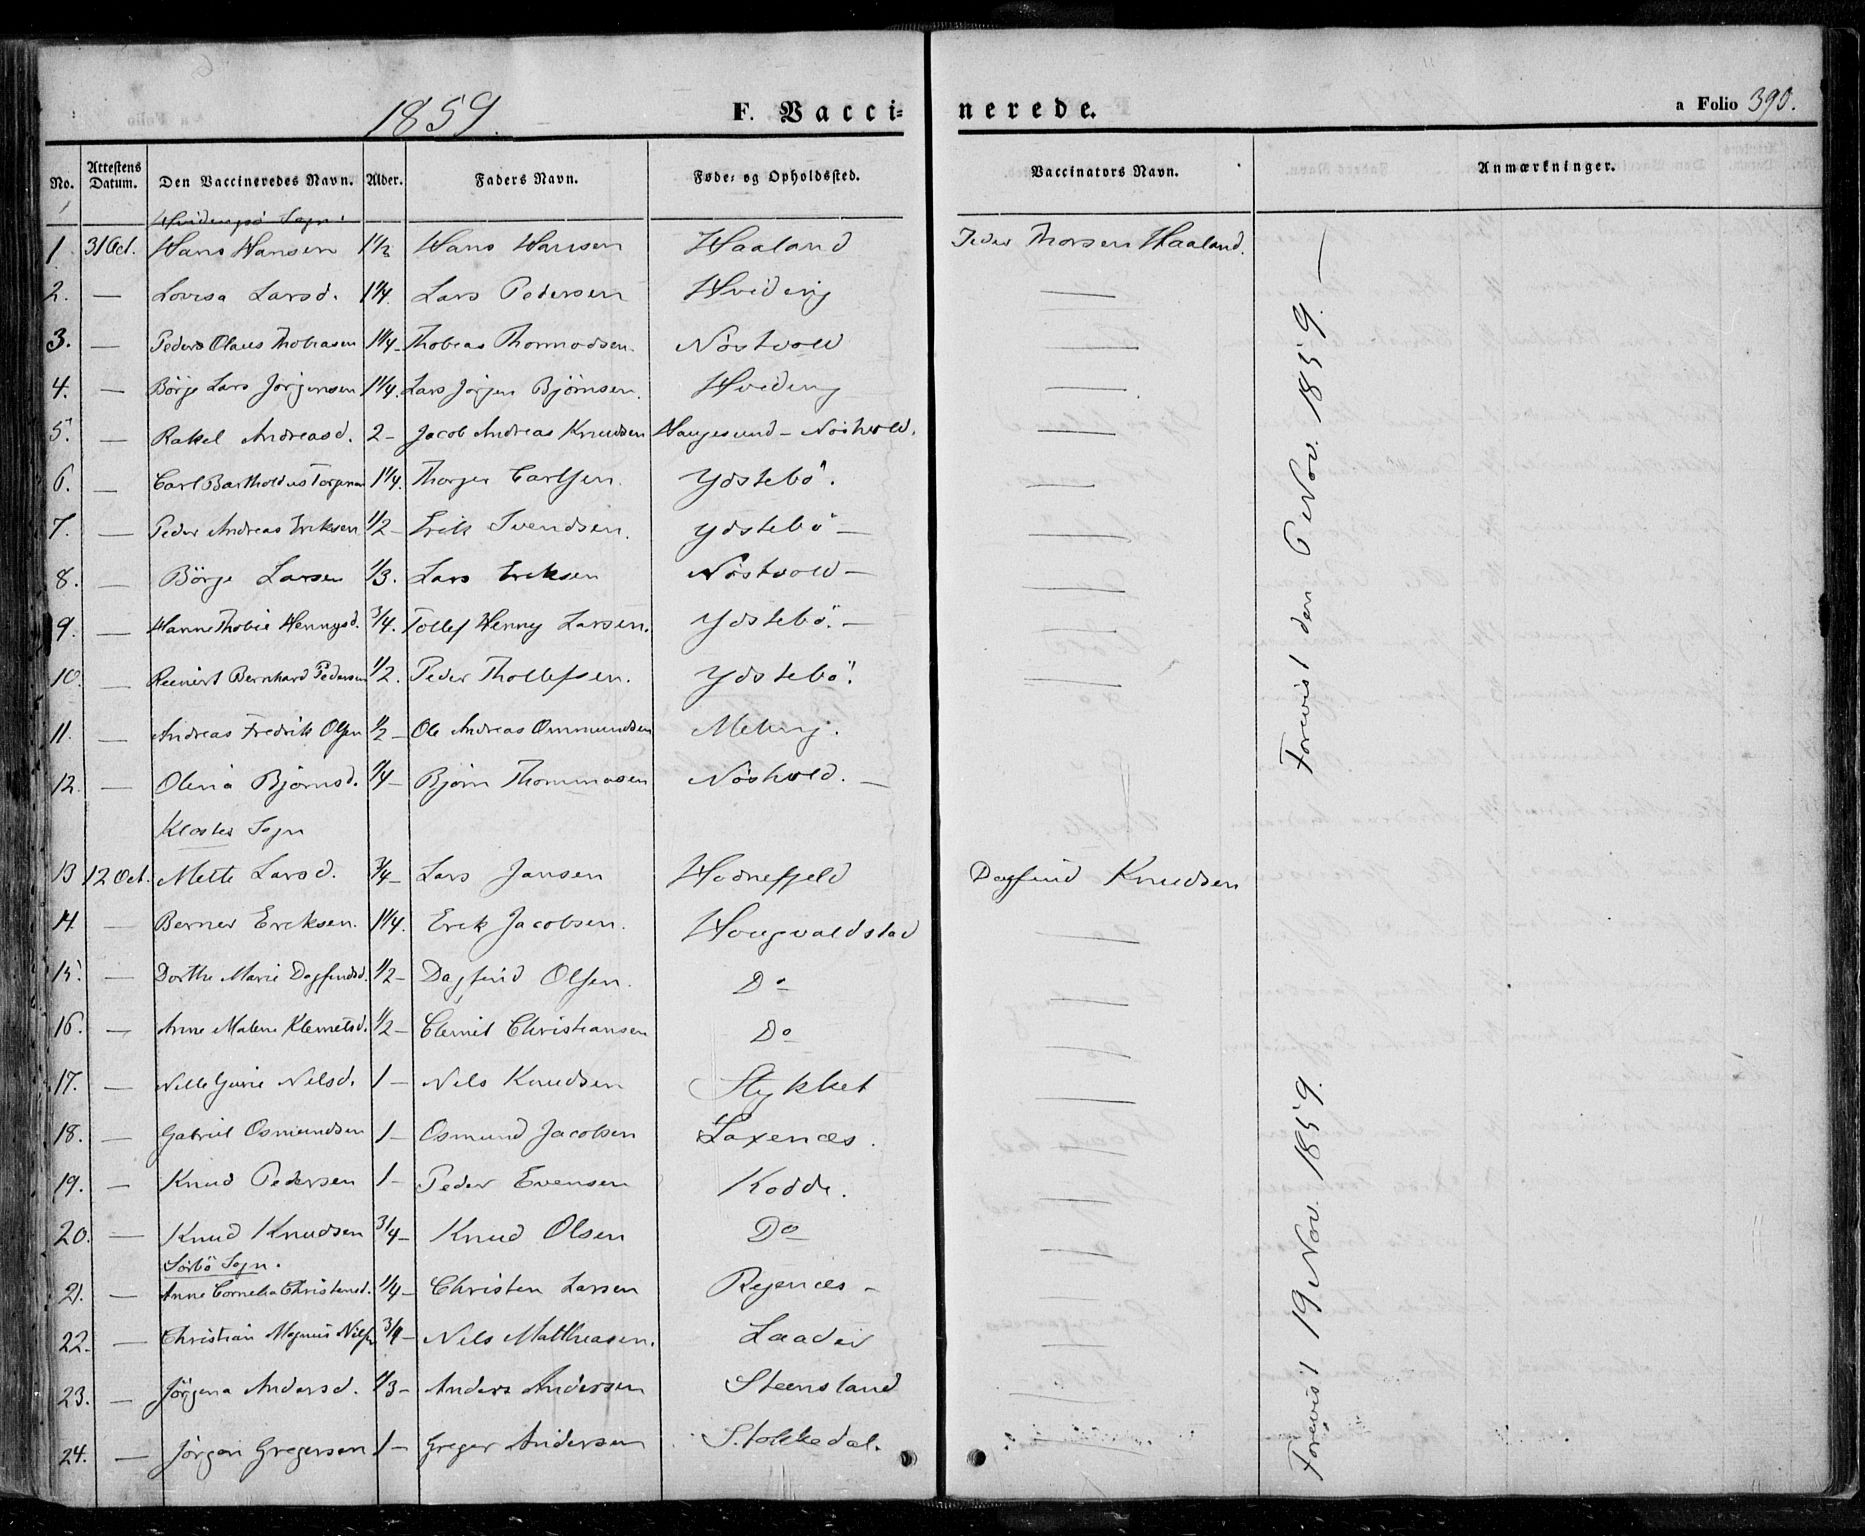 1859. F. Vacci= nerede. a Folio 390.
No. Attestens Datum. Den Vaccineredes Navn. Alder. Faders Navn. Føde= og Opholdssted. Vaccinators Navn. Anmærkninger.
Hvidingsö Sogn.
1. 31 Oct. Hans Hansen 1 1/2 Hans Hansen Haaland Peder Thorsen Haaland.
2. — Lovisa Larsd. 1 1/4. Lars Pedersen Hviding —
3. — Peder Olaus Thobiasen 1 1/4 – Thobias Thormodsen. Nöstvold —
4. — Börge Lars Jörgensen 1 1/4. Lars Jörgen Björnsen. Hviding —
5. — Rakel Andreasd. 2 – Jacob Andreas Knudsen Haugesund – Nöstvold. —
6. — Carl Bartholdus Torgersen 1 1/4. Thorger Carlsen. Ydstebö. —
7. — Peder Andreas Eriksen 1/2 – Erik Svendsen. Ydstebö — —
8. — Börge Larsen 1/3. Lars Eriksen Nöstvold — —
9. — Hanne Thobie Hennygsd. 3/4. Tollef Henny Larsen. Ydstebö. — —
10. — Reinert Bernhard Pedersen 1/2. Peder Thollefsen. Ydstebö. —
11. — Andreas Fredrik Olsen 1/2 – Ole Andreas Ommundsen Meling.
12. — Olena Björnsd. 1/4 – Björn Thommasen Nöstvold. —
Kloster Sogn
13 12 Oct. Mette Larsd. 3/4 – Lars Jansen Hodnefjeld Dagfind Knudsen
14 — Berner Ericksen. 1 1/4. Erik Jacobsen. Hougvaldstad —
15. — Dorthe Marie Dagfindsd. 1/2 – Dagfind Olsen. Do —
16. — Anne Malene Klemetsd. 1/2 – Clemet Christiansen Do —
17. — Nelle Gurie Nilsd. 1 – Nils Knudsen Stykket —
18. — Gabriel Osmundsen 1 – Osmund Jacobsen Laxenæs. —
19. — Knud Pedersen 1 – Peder Evensen Kodde. —
20. — Knud Knudsen 3/4 – Knud Olsen Do —
Sörbö Sogn.
21. — Anne Cornelia Christensd. 1/4 – Christen Larsen Rejenæs – —
22. — Christian Magnus Nilsen 3/4 – Nils Matthiasen. Laadei —
23. — Jörgena Andersd. 1/3 – Anders Andersen Steensland —
24. — Jörgen Gregersen 1 – Greger Andersen Stokkedal. —
Forevist den 6 Nov. 1859. —
Forevist 19 Nov. 1859.